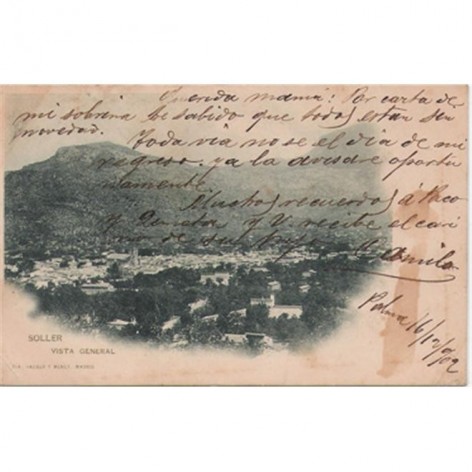 Querida mamá: Por carta de
mi sobrina he sabido que todos estan sin
novedad.
Toda via no se el dia de mi
regreso. ya la avisare oportu
namente.
Muchos recuerdos á Paco
y y recibe el cari
de su
Palma 16/12/02
SOLLER
VISTA GENERAL
HAUSER Y MENET. MADRID